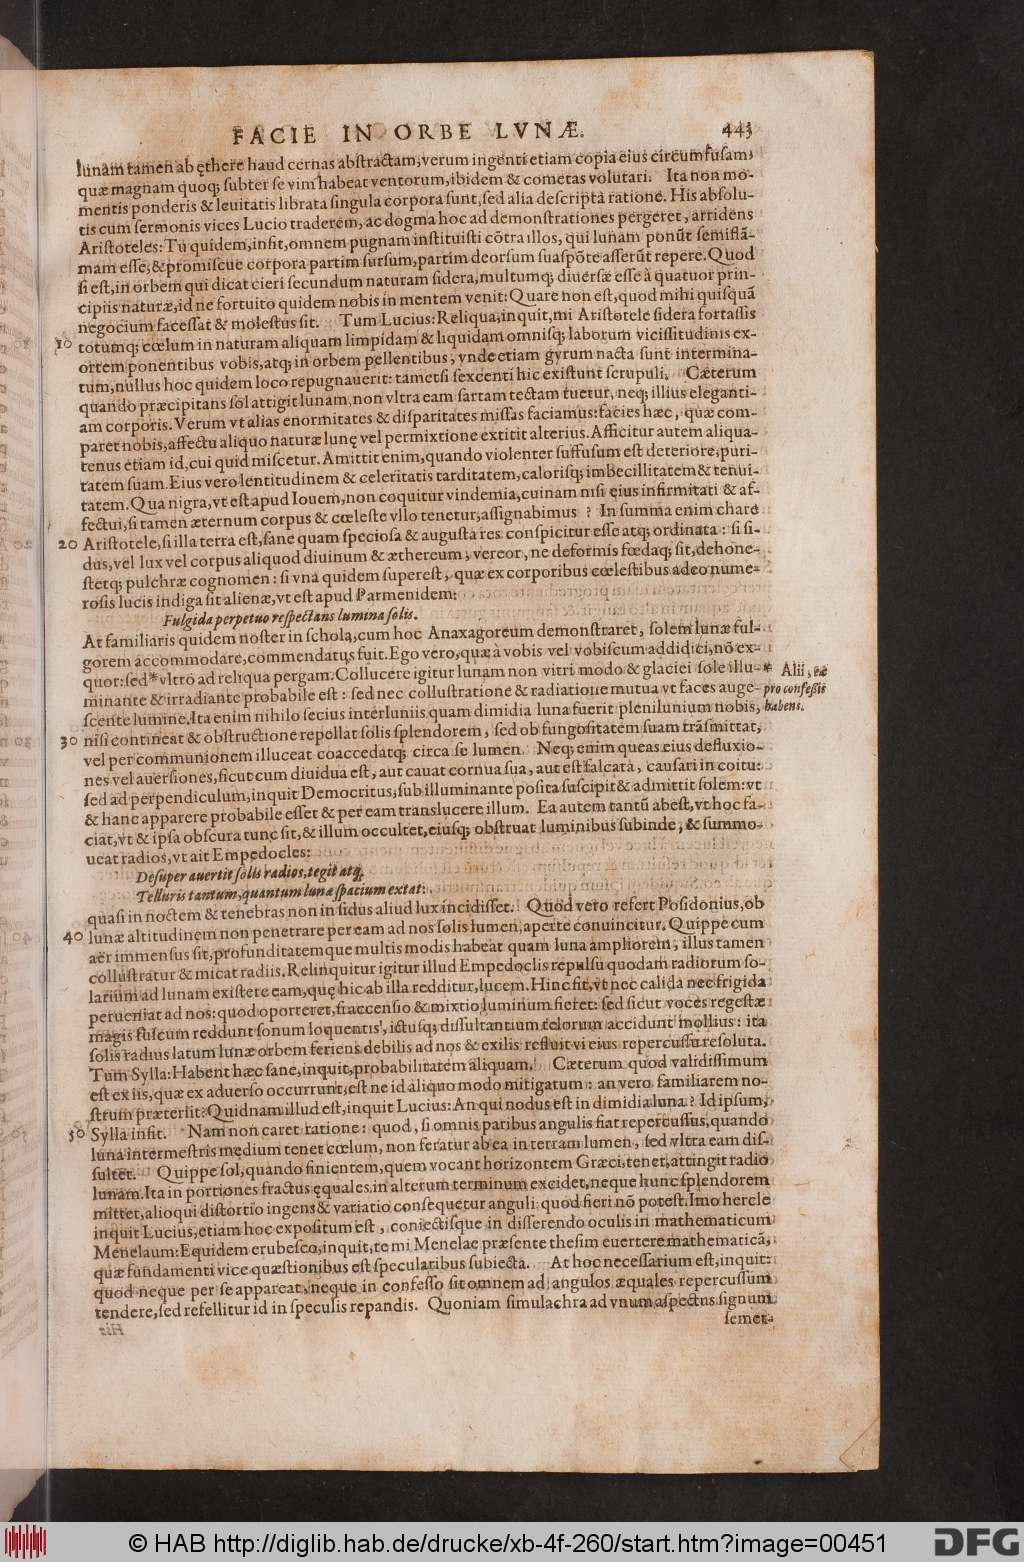 FACIE IN ORBE LVNÆ. 443
lunam tamen ab ęthere haud cernas abstractam, verum ingenti etiam copia eius circumfusam,
quæ magnam quoq; subter se vim habeat ventorum, ibidem & cometas volutari. Ita non mo-
mentis ponderis & leuitatis librata singula corpora sunt, sed alia descripta ratione. His absolu-
tis cum sermonis vices Lucio traderem, ac dogma hoc ad demonstrationes pergeret, arridens
Aristoteles: Tu quidem, insit, omnem pugnam instituisti cõtra illos, qui lunam ponũt semiflã-
mam esse, & promiscue corpora partim sursum, partim deorsum sua spõte asserũt repere. Quod
si est, in orbem qui dicat cieri secundum naturam sidera, multumq; diuersæ esse à quatuor prin-
cipiis naturæ, id ne fortuito quidem nobis in mentem venit: Quare non est, quod mihi quisquã
negocium facessat & molestus sit. Tum Lucius: Reliqua, inquit, mi Aristotele sidera fortassis
10 totumq; cœlum in naturam aliquam limpidam & liquidam omnisq; laborum vicissitudinis ex-
ortem ponentibus vobis, atq; in orbem pellentibus, vnde etiam gyrum nacta sunt intermina-
tum, nullus hoc quidem loco repugnauerit: tametsi sexcenti hic existunt scrupuli. Cæterum
quando præcipitans sol attigit lunam, non vltra eam sartam tectam tuetur, neq; illius eleganti-
am corporis. Verum vt alias enormitates & disparitates missas faciamus: facies hæc, quæ com-
paret nobis, affectu aliquo naturæ lunę vel permixtione extitit alterius. Afficitur autem aliqua-
tenus etiam id, cui quid miscetur. Amittit enim, quando violenter suffusum est deteriore, puri-
tatem suam. Eius vero lentitudinem & celeritatis tarditatem, calorisq; imbecillitatem & tenui-
tatem. Qua nigra, vt est apud Iouem, non coquitur vindemia, cuinam nisi ęius infirmitati & af-
fectui, si tamen æternum corpus & cœleste vllo tenetur, assignabimus? In summa enim chare
20 Aristotele, si illa terra est, sane quam speciosa & augusta res conspicitur esse atq; ordinata: si si-
dus, vel lux vel corpus aliquod diuinum & æthereum, vereor, ne deformis fœdaq; sit, dehone-
stetq; pulchræ cognomen: si vna quidem superest, quæ ex corporibus cœlestibus adeo nume-
rosis lucis indiga sit alienæ, vt est apud Parmenidem:
Fulgida perpetuo respectans lumina solis.
At familiaris quidem noster in schola, cum hoc Anaxagoreum demonstraret, solem lunæ ful-
gorem accommodare, commendatus fuit. Ego vero, quæ à vobis vel vobiscum addidici, nõ ex-
quor: sed * vltro ad reliqua pergam. Collucere igitur lunam non vitri modo & glaciei sole illu-
minante & irradiante probabile est: sed nec collustratione & radiatione mutua vt faces auge-
scente lumine. Ita enim nihilo secius interluniis quam dimidia luna fuerit plenilunium nobis,
* Alii, eæ
pro confeßis
habens.
30 nisi contineat & obstructione repellat solis splendorem, sed ob fungositatem suam trãsmittat,
vel per communionem illuceat coaccedatq; circa se lumen. Neq; enim queas eius defluxio-
nes vel auersiones, sicut cum diuidua est, aut cauat cornua sua, aut est falcata, causari in coitu:
sed ad perpendiculum, inquit Democritus, sub illuminante posita suscipit & admittit solem: vt
& hanc apparere probabile esset & per eam translucere illum. Ea autem tantũ abest, vt hoc fa-
ciat, vt & ipsa obscura tunc sit, & illum occultet, eiusq; obstruat luminibus subinde, & summo-
ueat radios, vt ait Empedocles:
Desuper auertit solis radios, tegit atq;
Telluris tantum, quantum lunæ spacium extat:
quasi in noctem & tenebras non in sidus aliud lux incidisset. Quod vero refert Posidonius, ob
40 lunæ altitudinem non penetrare per eam ad nos solis lumen, aperte conuincitur. Quippe cum
aër immensus sit, profunditatemque multis modis habeat quam luna ampliorem, illus tamen
collustratur & micat radiis. Relinquitur igitur illud Empedoclis repulsu quodam radiorum so-
larium ad lunam existere eam, quę hic ab illa redditur, lucem. Hinc fit, vt nec calida nec frigida
perueniat ad nos: quod oporteret, si accensio & mixtio luminum fieret: sed sicut voces regestæ
magis fuscum reddunt sonum loquentis, ictusq; dissultantium telorum accidunt mollius: ita
solis radius latum lunæ orbem feriens debilis ad nos & exilis refluit vi eius repercussu resoluta.
Tum Sylla: Habent hæc sane, inquit, probabilitatem aliquam. Cæterum quod validissimum
est ex iis, quæ ex aduerso occurrunt, est ne id aliquo modo mitigatum: an vero familiarem no-
strum præterlit? Quidnam illud est, inquit Lucius: An qui nodus est in dimidia luna? Id ipsum,
50 Sylla insit. Nam non caret ratione: quod, si omnis paribus angulis fiat repercussus, quando
luna intermestris medium tenet cœlum, non feratur ab ea in terram lumen, sed vltra eam dis-
sultet. Quippe sol, quando finientem, quem vocant horizontem Græci, tenet, attingit radio
lunam. Ita in portiones fractus ęquales in alterum terminum excidet, neque hunc splendorem
mittet, alioqui distortio ingens & variatio consequetur anguli: quod fieri nõ potest. Imo hercle
inquit Lucius, etiam hoc expositum est, coniectisque in disserendo oculis in mathematicum
Menelaum: Equidem erubesco, inquit, te mi Menelae præsente thesim euertere mathematicã,
quæ fundamenti vice quæstionibus est specularibus subiecta. At hoc necessarium est, inquit:
quod neque per se appareat, neque in confesso sit omnem ad angulos æquales repercussum
tendere, sed refellitur id in speculis repandis. Quoniam simulachra ad vnum aspectus signum
semet-
© HAB http://diglib.hab.de/drucke/xb-4f-260/start.htm?image=00451
DFG